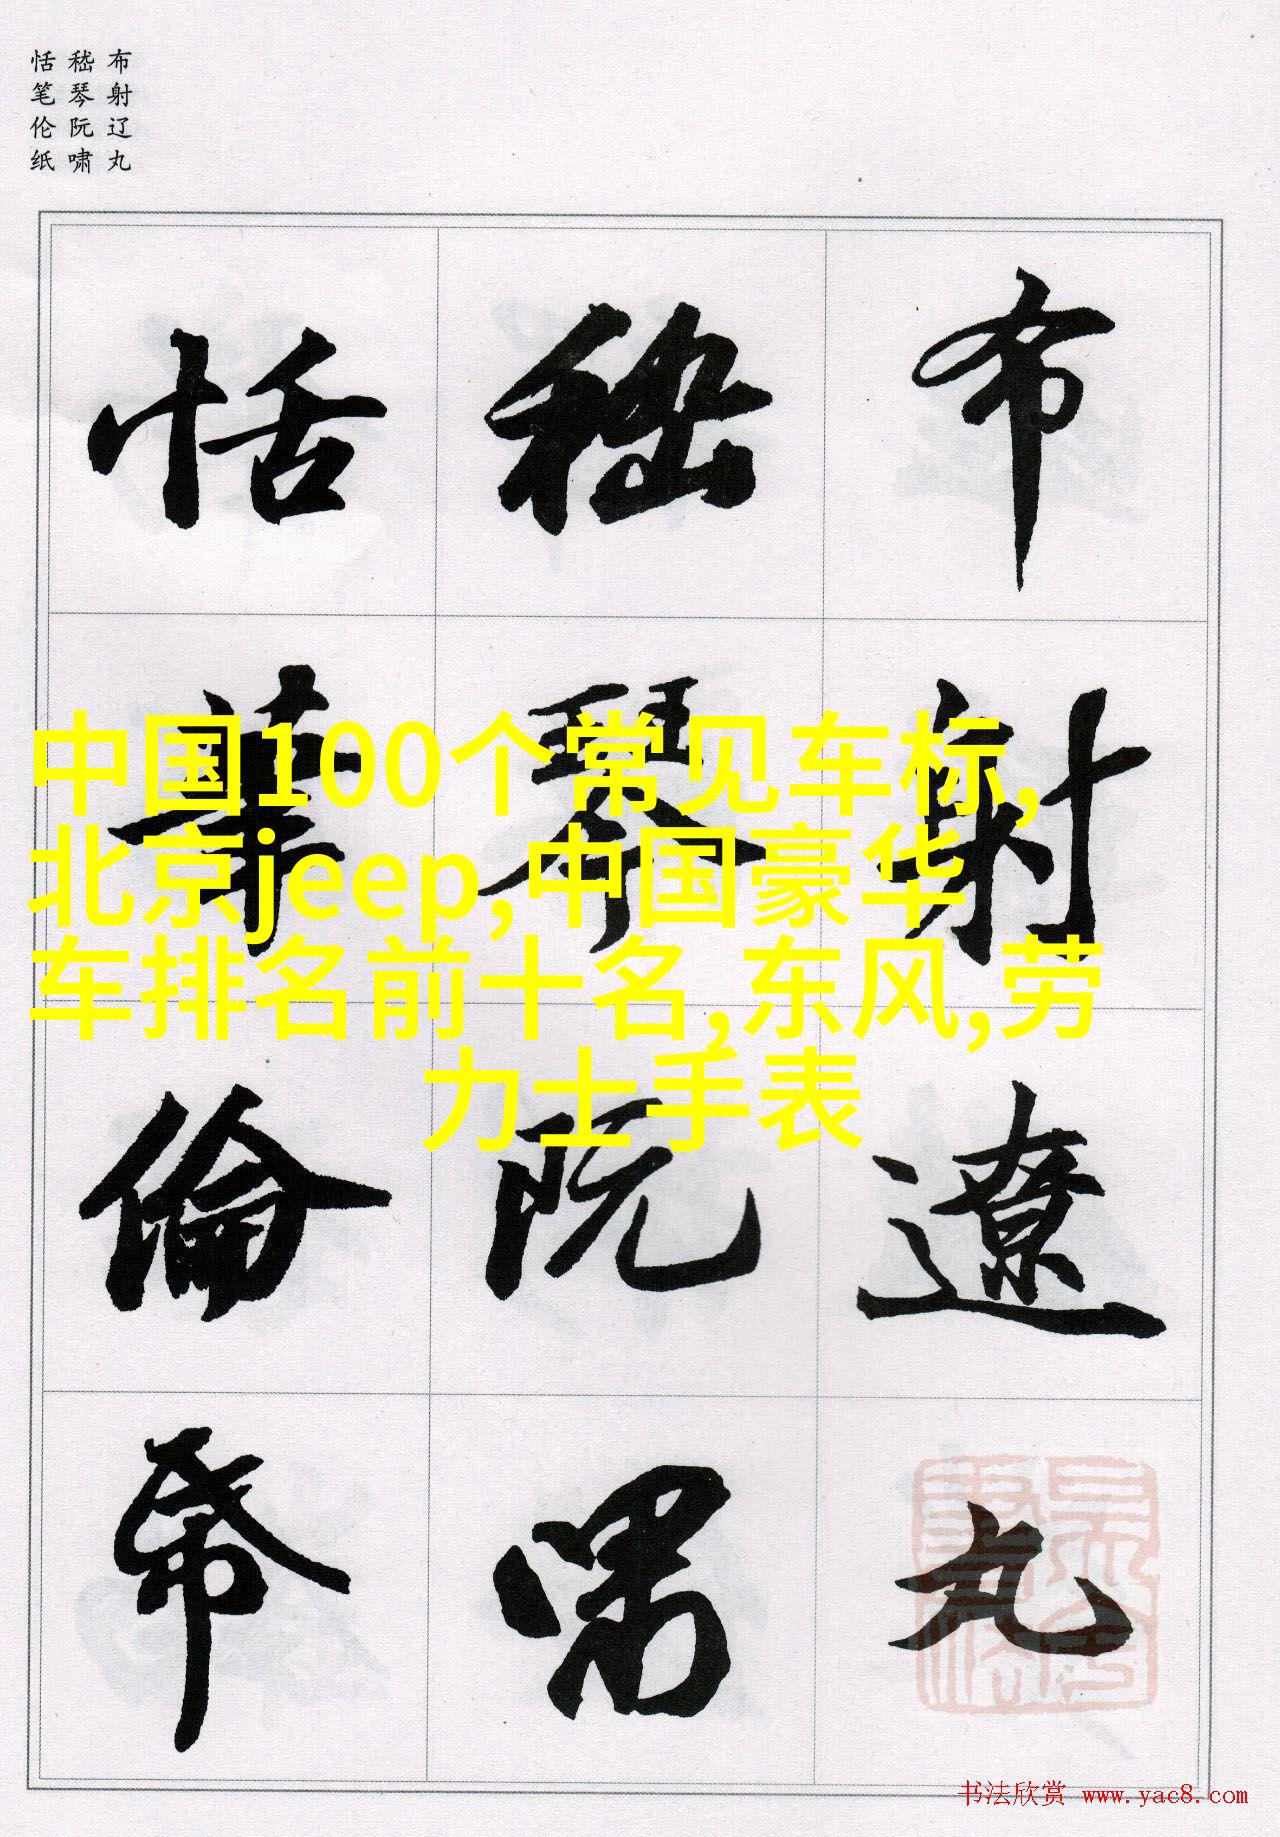 布射辽丸
嵇琴阮啸
恬笔伦纸
布射遼丸
嵇琴阮嘯
恬筆倫帋
中国100个常见车标,
北京jeep,中国豪华
车排名前十名,东风,劳
力士手表
书法欣赏 www.yac8.com